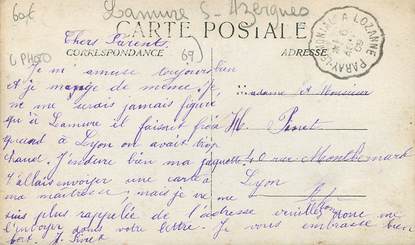 60f
Lamure S- Azergues
CARTE POSTALE
CPHOTO
Chers Parents.
(69)
CORRESPONDANCE
ADRESSE
PARAY-LE-MONIAL A LOZANNE
Je m'amuse toujours bien
et je mange de même. Je
ne me serais jamais figuré
qu'à Lamure il faisait froid
quand à Lyon on avait trop
chaud. J'endure bien ma jaquette.
J'allais envoyer une carte à
ma maîtresse; mais je ne me
suis plus rappelée de l'adresse veuillez donc me
l'envoyer dans votre lettre. Je vous embrasse bien
fort. J. Pinet
Madame et Monsieur
H. Pinet
40 rue Montbernard
Lyon
Rhône